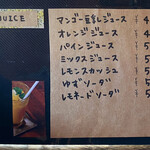 JUICE
マンゴー豆乳ジュース 4
オレンジジュース 4
パインジュース 5
ミックスジュース 5
レモンスカッシュ 5
ゆずソーダ 5
レモネードソーダ 5